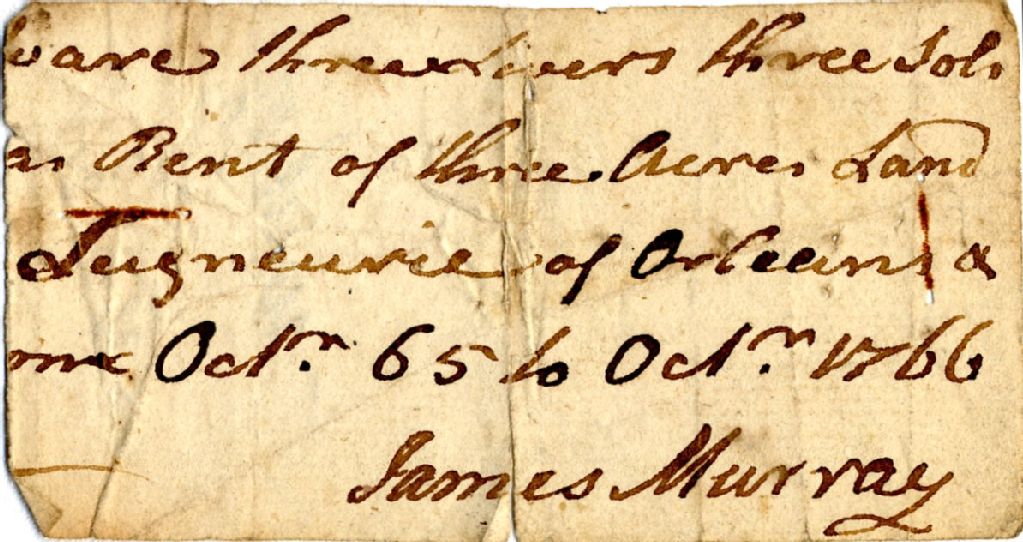 are three Livers three Sols
as Rent of three Acres Land
Seigneurie of Orleans &
me Octr. 65 to Octr. 1766
James Murray